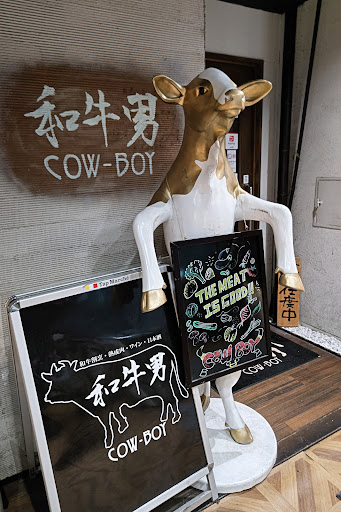 和牛男
COW-BOY
THE MEAT
IS GOOD!!
COW BOY
Tap Marché
和牛割烹・熟成肉・ワイン・日本酒
和牛男
COW-BOY
COW-BOY
中